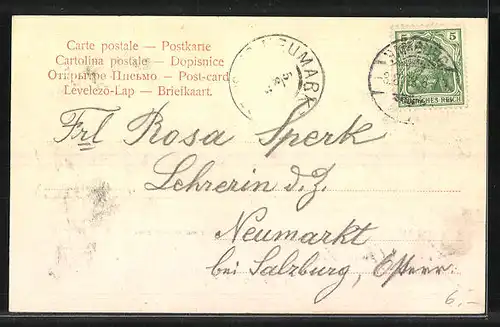 Carte postale — Postkarte
Cartolina postale — Dopisnice
Открытое Письмо — Post-card
Levelező-Lap — Briefkaart.
NEUMARK
5 5
DEUTSCHES REICH
Frl Rosa Sperk
Lehrerin d. Z.
Neumarkt
bei Salzburg, Österr.
6,-